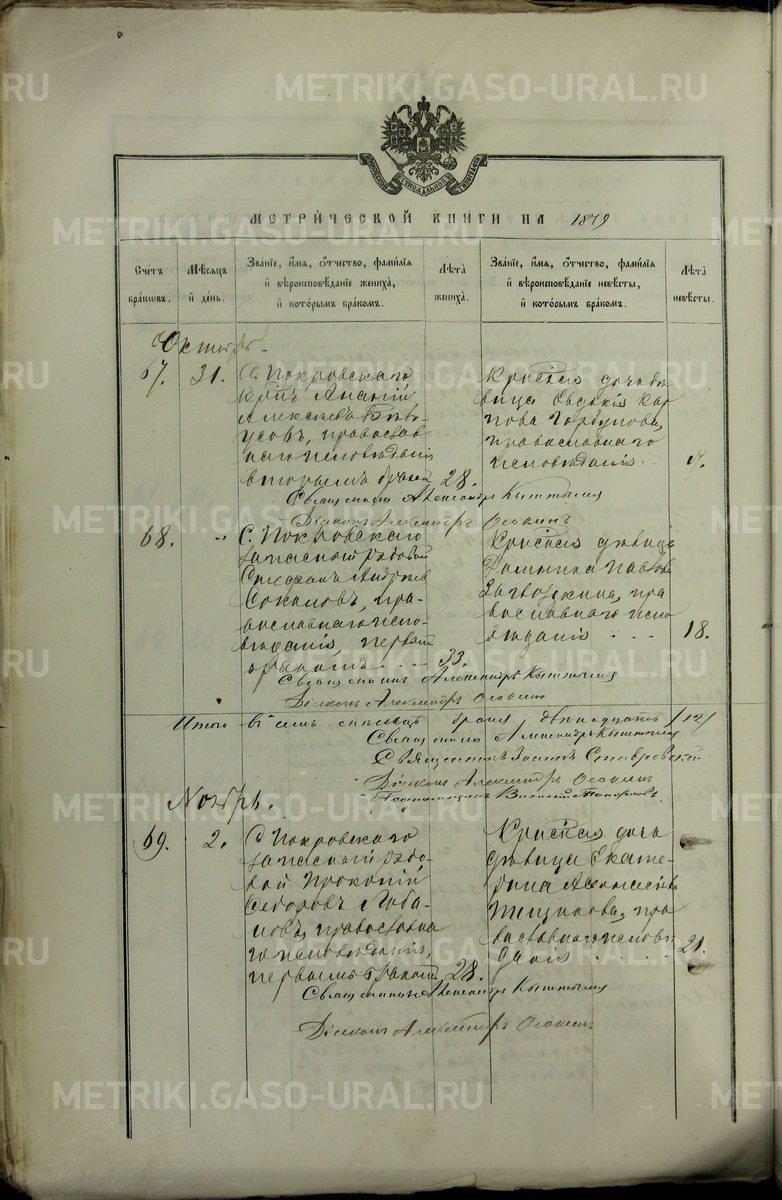 METRIKI.GASO-URAL.RU
МЕТРИ́ЧЕСКОЙ КНИГИ НА 1879
Счетъ браковъ.
Мѣсяцъ и день.
Званіе, имя, отчество, фамилія и вѣроисповѣданіе жениха, и которымъ бракомъ.
Лѣта жениха.
Званіе, имя, отчество, фамилія и вѣроисповѣданіе невѣсты, и которымъ бракомъ.
Лѣта невѣсты.
Октябрь.
67. 31.
С. Покровскаго
крес. Ананій
Алексѣевъ
православ
наго исповѣданія
вторымъ бракомъ 28.
Крестьян. дочь дѣ
вица Евдокія Кар
пова Горбунова,
православнаго
исповѣданія
Священникъ Александръ Кыштымовъ
Діаконъ Александръ Осокинъ
68. "
С. Покровскаго
запасный рядовой
Андреевъ
Соколовъ, пра-
вославнаго испо-
вѣданія, первымъ
бракомъ 33.
Крестьян. дѣвица
Павлова
пра
вославнаго испо
вѣданія 18.
Священникъ Александръ Кыштымовъ
Діаконъ Александръ Осокинъ
Итого въ семъ мѣсяцѣ брака двѣнадцать /12/
Священникъ Александръ Кыштымовъ
Священникъ Іоаннъ Ставровскій
Діаконъ Александръ Осокинъ
Псаломщикъ Василій Топорковъ
Ноябрь.
69. 2.
С. Покровскаго
запасный рядо-
вой Прокопій
Ѳедоровъ Лоба-
новъ, православна
го исповѣданія,
первымъ бракомъ 28.
Крестьян. дочь
дѣвица Екате-
рина
пра
вославнаго исповѣ
данія 21.
Священникъ Александръ Кыштымовъ
Діаконъ Александръ Осокинъ